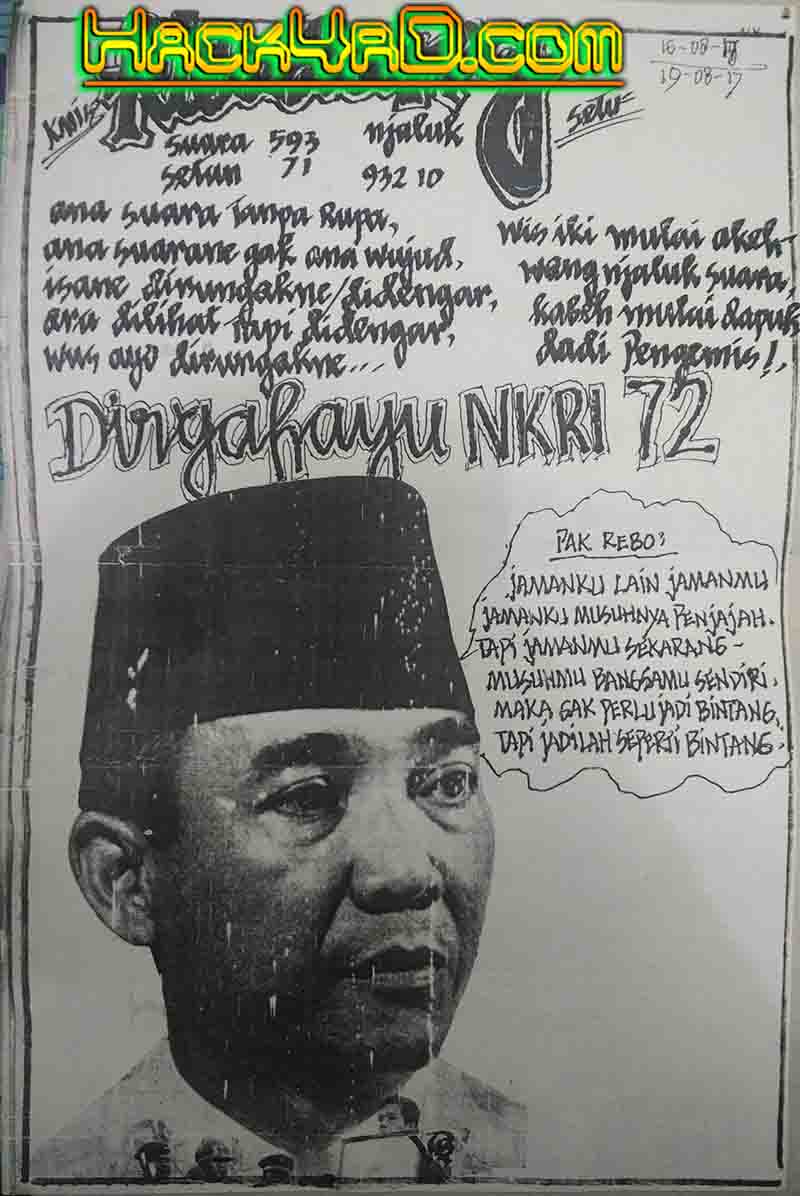 HackYaD.com
16-08-17
19-08-17
suara 593 njaluk
setan 71 932 10
ana suara Tanpa Rupa,
ana suarane gak ana wujud,
isane dirungakne/didengar,
ora dilihat tapi didengar,
wus ayo dirungakne...
wis iki mulai akeh
wong njaluk suara,
kabeh mulai dapuk
dadi Pengemis!,
Dirgahayu NKRI 72
PAK REBO:
JAMANKU LAIN JAMANMU
JAMANKU MUSUHNYA PENJAJAH.
TAPI JAMANMU SEKARANG -
MUSUHMU BANGSAMU SENDIRI.
MAKA GAK PERLU JADI BINTANG,
TAPI JADILAH SEPERTI BINTANG.